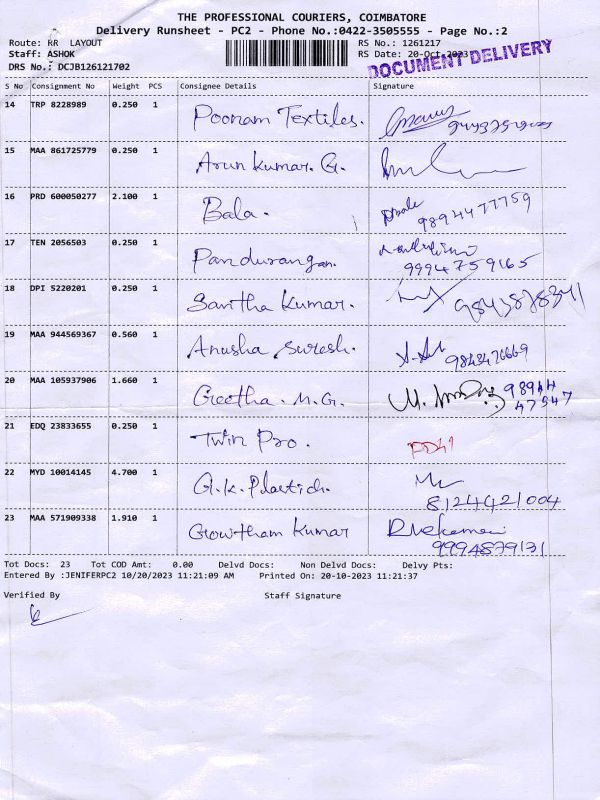 THE PROFESSIONAL COURIERS, COIMBATORE
Delivery Runsheet - PC2 - Phone No.:0422-3505555 - Page No.:2
Route: RR LAYOUT RS No.: 1261217
Staff: ASHOK RS Date: 20-Oct-2023
DRS No.: DCJB126121702 DOCUMENT DELIVERY
S No Consignment No Weight PCS Consignee Details Signature
14 TRP 8228989 0.250 1 Poonam Textiles.
15 MAA 861725779 0.250 1 Arun Kumar. G.
16 PRD 600050277 2.100 1 Bala. 9894477759
17 TEN 2056503 0.250 1 Pandurangan. 9994759165
18 DPI 5220201 0.250 1 Santha Kumar. 9843878341
19 MAA 944569367 0.560 1 Anusha Suresh. 9843476669
20 MAA 105937906 1.660 1 Geetha. M.G. 98944
47547
21 EDQ 23833655 0.250 1 Twin Pro.
22 MYD 10014145 4.700 1 G.K. Plastich. 8124421004
23 MAA 571909338 1.910 1 Growtham Kumar 9994879131
Tot Docs: 23 Tot COD Amt: 0.00 Delvd Docs: Non Delvd Docs: Delvy Pts:
Entered By :JENIFERPC2 10/20/2023 11:21:09 AM Printed On: 20-10-2023 11:21:37
Verified By Staff Signature